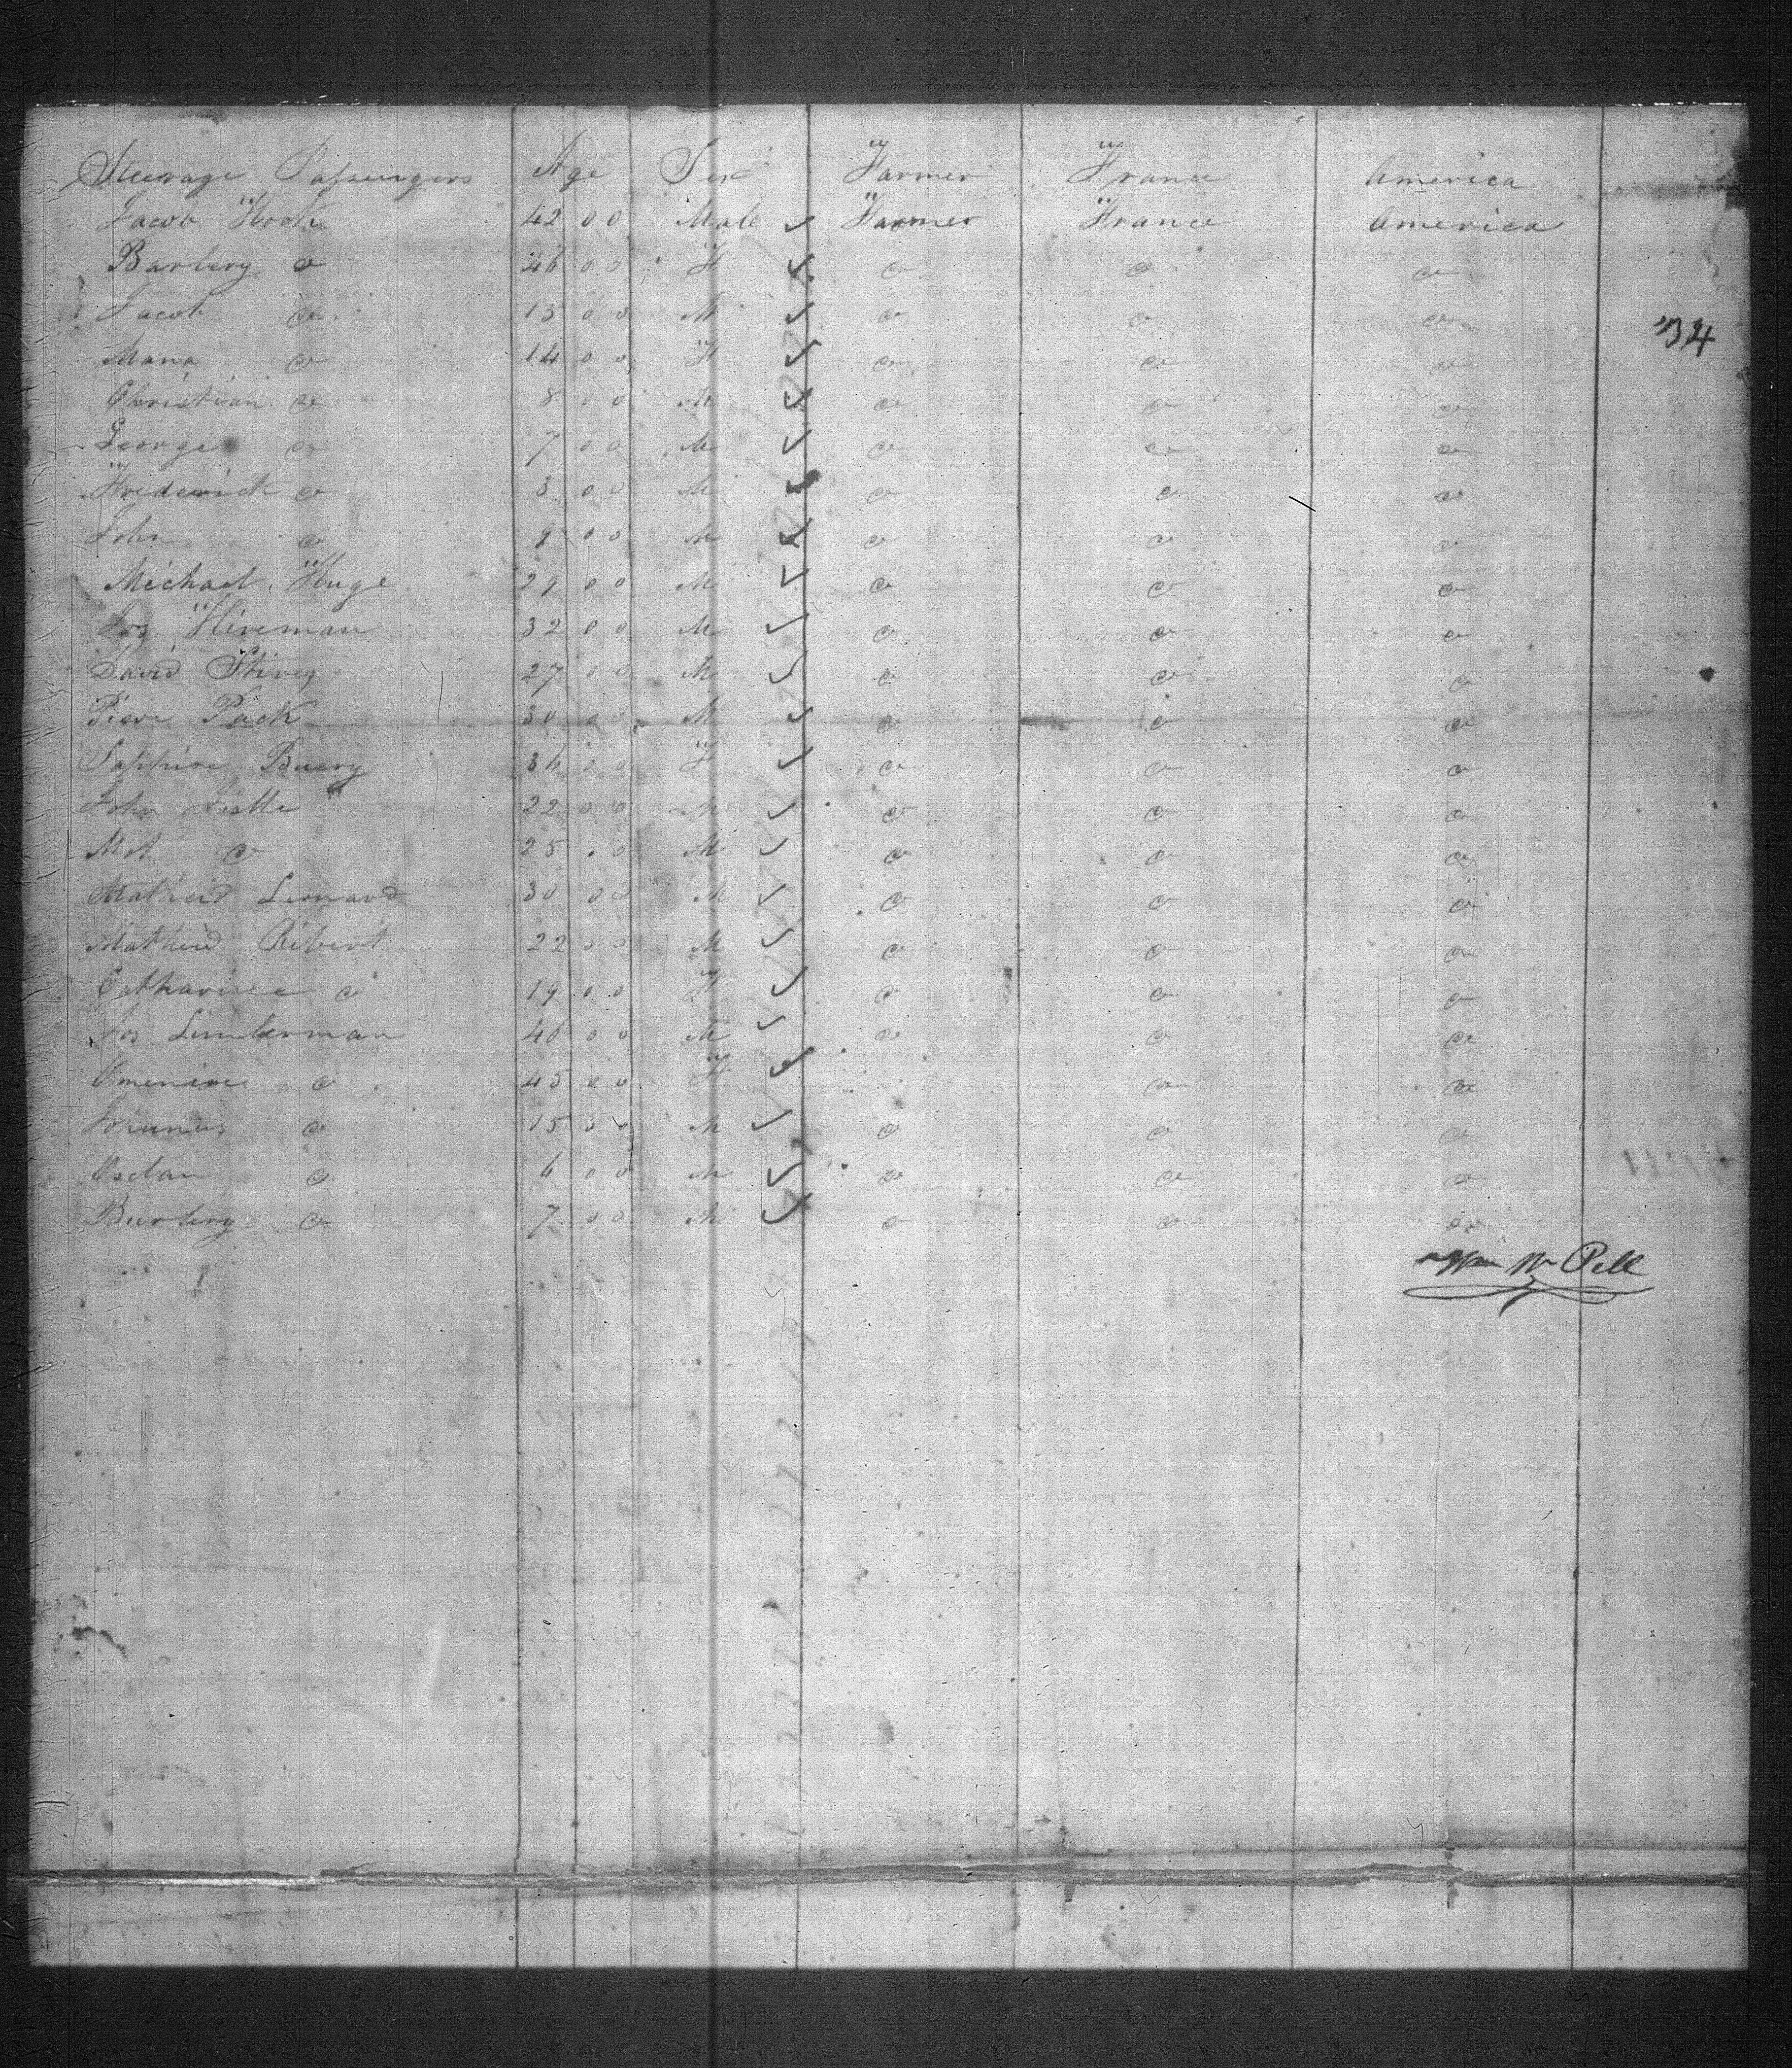 Steerage Passengers Age Sex Farmer France America
Jacob Hock 42 0 0 Male Farmer France America
Barbery do 46 0 0 F do do do
Jacob do 15 0 0 M do do do
"34
Maria do 14 0 0 F do do do
Christian do 8 0 0 M do do do
George do 7 0 0 M do do do
Frederick do 3 0 0 M do do do
John do 9 0 0 M do do do
Michael Huge 29 0 0 M do do do
Jos Hireman 32 0 0 M do do do
David 27 0 0 M do do do
Piere Pack 30 0 0 M do do do
Saphire 36 0 0 F do do do
John 22 0 0 M do do do
25 0 M do do do
30 0 0 M do do do
Ribert 22 0 0 M do do do
Catharine do 19 0 0 F do do do
Jos Limberman 46 0 0 M do do do
do 45 0 0 F do do
do 15 0 0 M do do do
do 6 0 0 M do do do
Burbery do 7 0 0 M do do do
Wm Pell